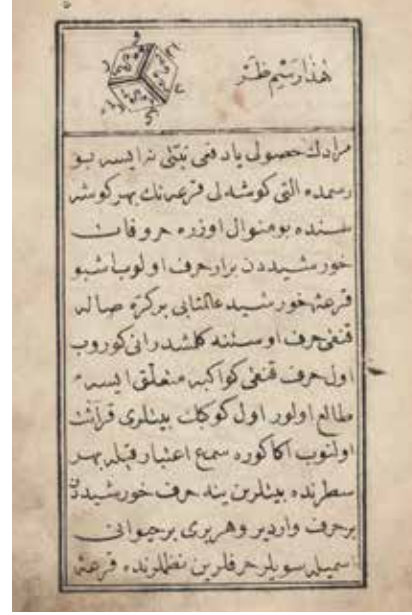 هذا رسم ظفر
مرادك حصولی یاد قنی نیتی نه ایسه بو
رسمده التی کوشه لی قرعه نك بهر کوشه
سنده بو منوال اوزره حروفات
خورشیددن برر حرف اولوب اشبو
قرعهٔ خورشید عالمتابی بر کره صاله
قنغی حرف اوستنه کلشدر انی کوروب
اول حرف قنغی کواکبه متعلق ایسه
طالع اولور اول کوکبك بیتلری قرآئت
اولنوب اکا کوره سمع اعتبار قیله بهر
سطرنده بیتلرین ینه حرف خورشیددن
بر حرف واردیر وهر بری بر حیوانی
اسمیله سویلر حرفلرین نظملرنده قرعه